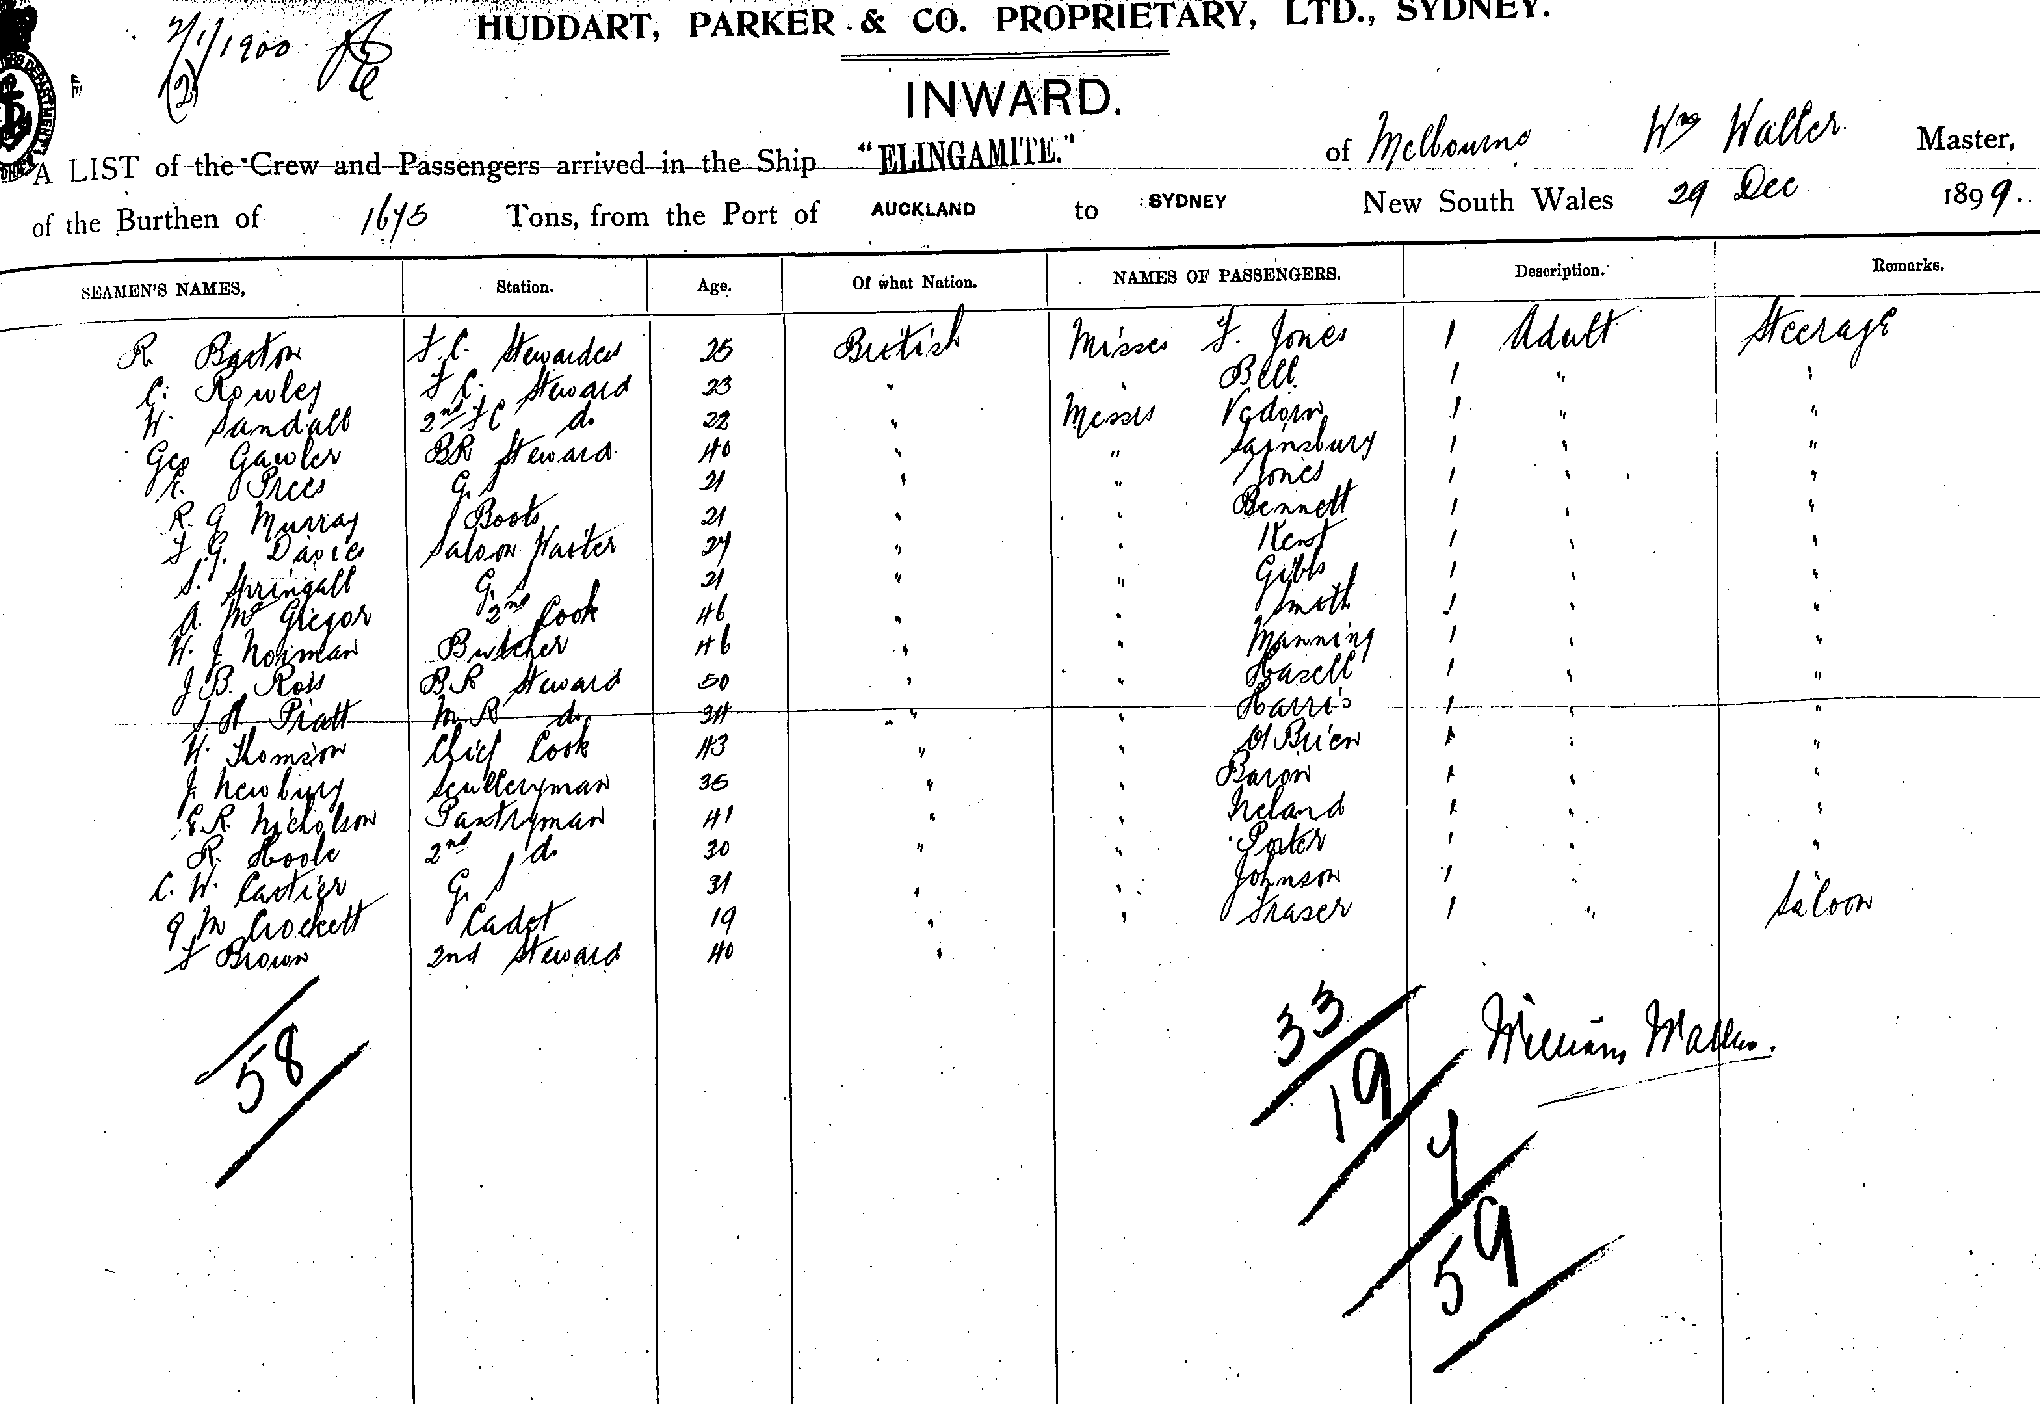 2/1/1900
(2)
HUDDART, PARKER & CO. PROPRIETARY, LTD., SYDNEY.
INWARD.
A LIST of the Crew and Passengers arrived in the Ship "ELINGAMITE." of Melbourne Wm Waller Master,
of the Burthen of 1675 Tons, from the Port of AUCKLAND to SYDNEY New South Wales 29 Dec 1899.
SEAMEN'S NAMES, Station. Age. Of what Nation. NAMES OF PASSENGERS. Description. Remarks.
R. Barton F.C. Stewardess 25 British Misses F. Jones 1 Adult Steerage
C. Rowley F.C. Steward 23 " " Bell 1 " "
W. Sandall 2nd F C do 22 " Messrs 1 " "
Geo Gawler BR Steward 40 " " Sainsbury 1 " "
E. Prees G. S 21 " " Jones 1 " "
R. G Murray Boots 21 " " Bennett 1 " "
F. G. Davies Saloon Waiter 24 " " Kent 1 " "
S. Springall G. S 21 " " Gibbs 1 " "
A. McGregor 2nd Cook 46 " " Smith 1 " "
W. J Norman Butcher 46 " " Manning 1 " "
J B. Ross B.R Steward 50 " " Hasell 1 " "
J. H Pratt M R do 34 " " Harris 1 " "
W. Thomson Chief Cook 43 " " O'Brien 1 " "
J. Newbury Sculleryman 35 " " Baron 1 " "
E.R. Nicholson Pantryman 41 " " Ireland 1 " "
R. Hoole 2nd do 30 " " Porter 1 " "
C. W. Cartier G. S 31 " " Johnson 1 "
G M Crockett Cadet 19 " " Fraser 1 " Saloon
F Brown 2nd Steward 40 "
58
33
19
7
59
William Waller.